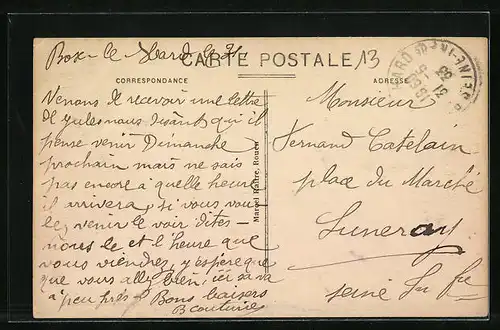 Bosc-le-Hard le 21
CARTE POSTALE
13
CORRESPONDANCE
ADRESSE
Venons de recevoir une lettre
de jules nous disant qu'il
pense venir Dimanche
prochain mais ne sais
pas encore à quelle heure
il arrivera, si vous vou
lez venir le voir dites-
nous le et l'heure que
vous viendrez, j'espère que
que vous allez bien, ici sa va
à peu près Bons baisers
B couturier
Marcel Maître, Rouen
Monsieur
Fernand Catelain
place du Marché
Luneray
seine Inf re